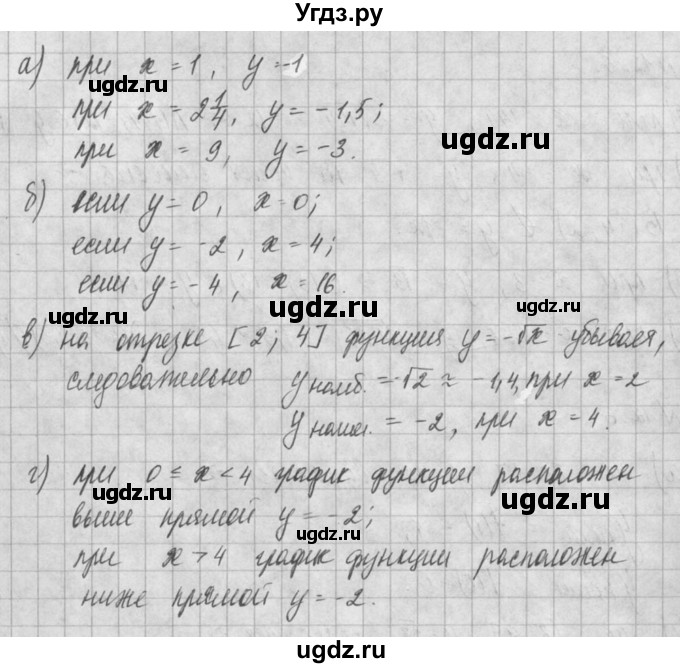 Угдз.ру
а) при x = 1, y = -1
ugdz.ru
при x = 2 1/4, y = -1,5;
ugdz.ru
при x = 9, y = -3.
б) если y = 0, x = 0;
если y = -2, x = 4;
ugdz.ru
если y = -4, x = 16.
ugdz.ru
ugdz.ru
в) на отрезке [2; 4] функция y = -√x убывает,
следовательно y наиб. = -√2 ≈ -1,4, при x = 2
ugdz.ru
y наим. = -2, при x = 4.
г) при 0 ≤ x < 4 график функции расположен
ugdz.ru
выше прямой y = -2;
ugdz.ru
при x > 4 график функции расположен
ugdz.ru
ниже прямой y = -2.
ugdz.ru